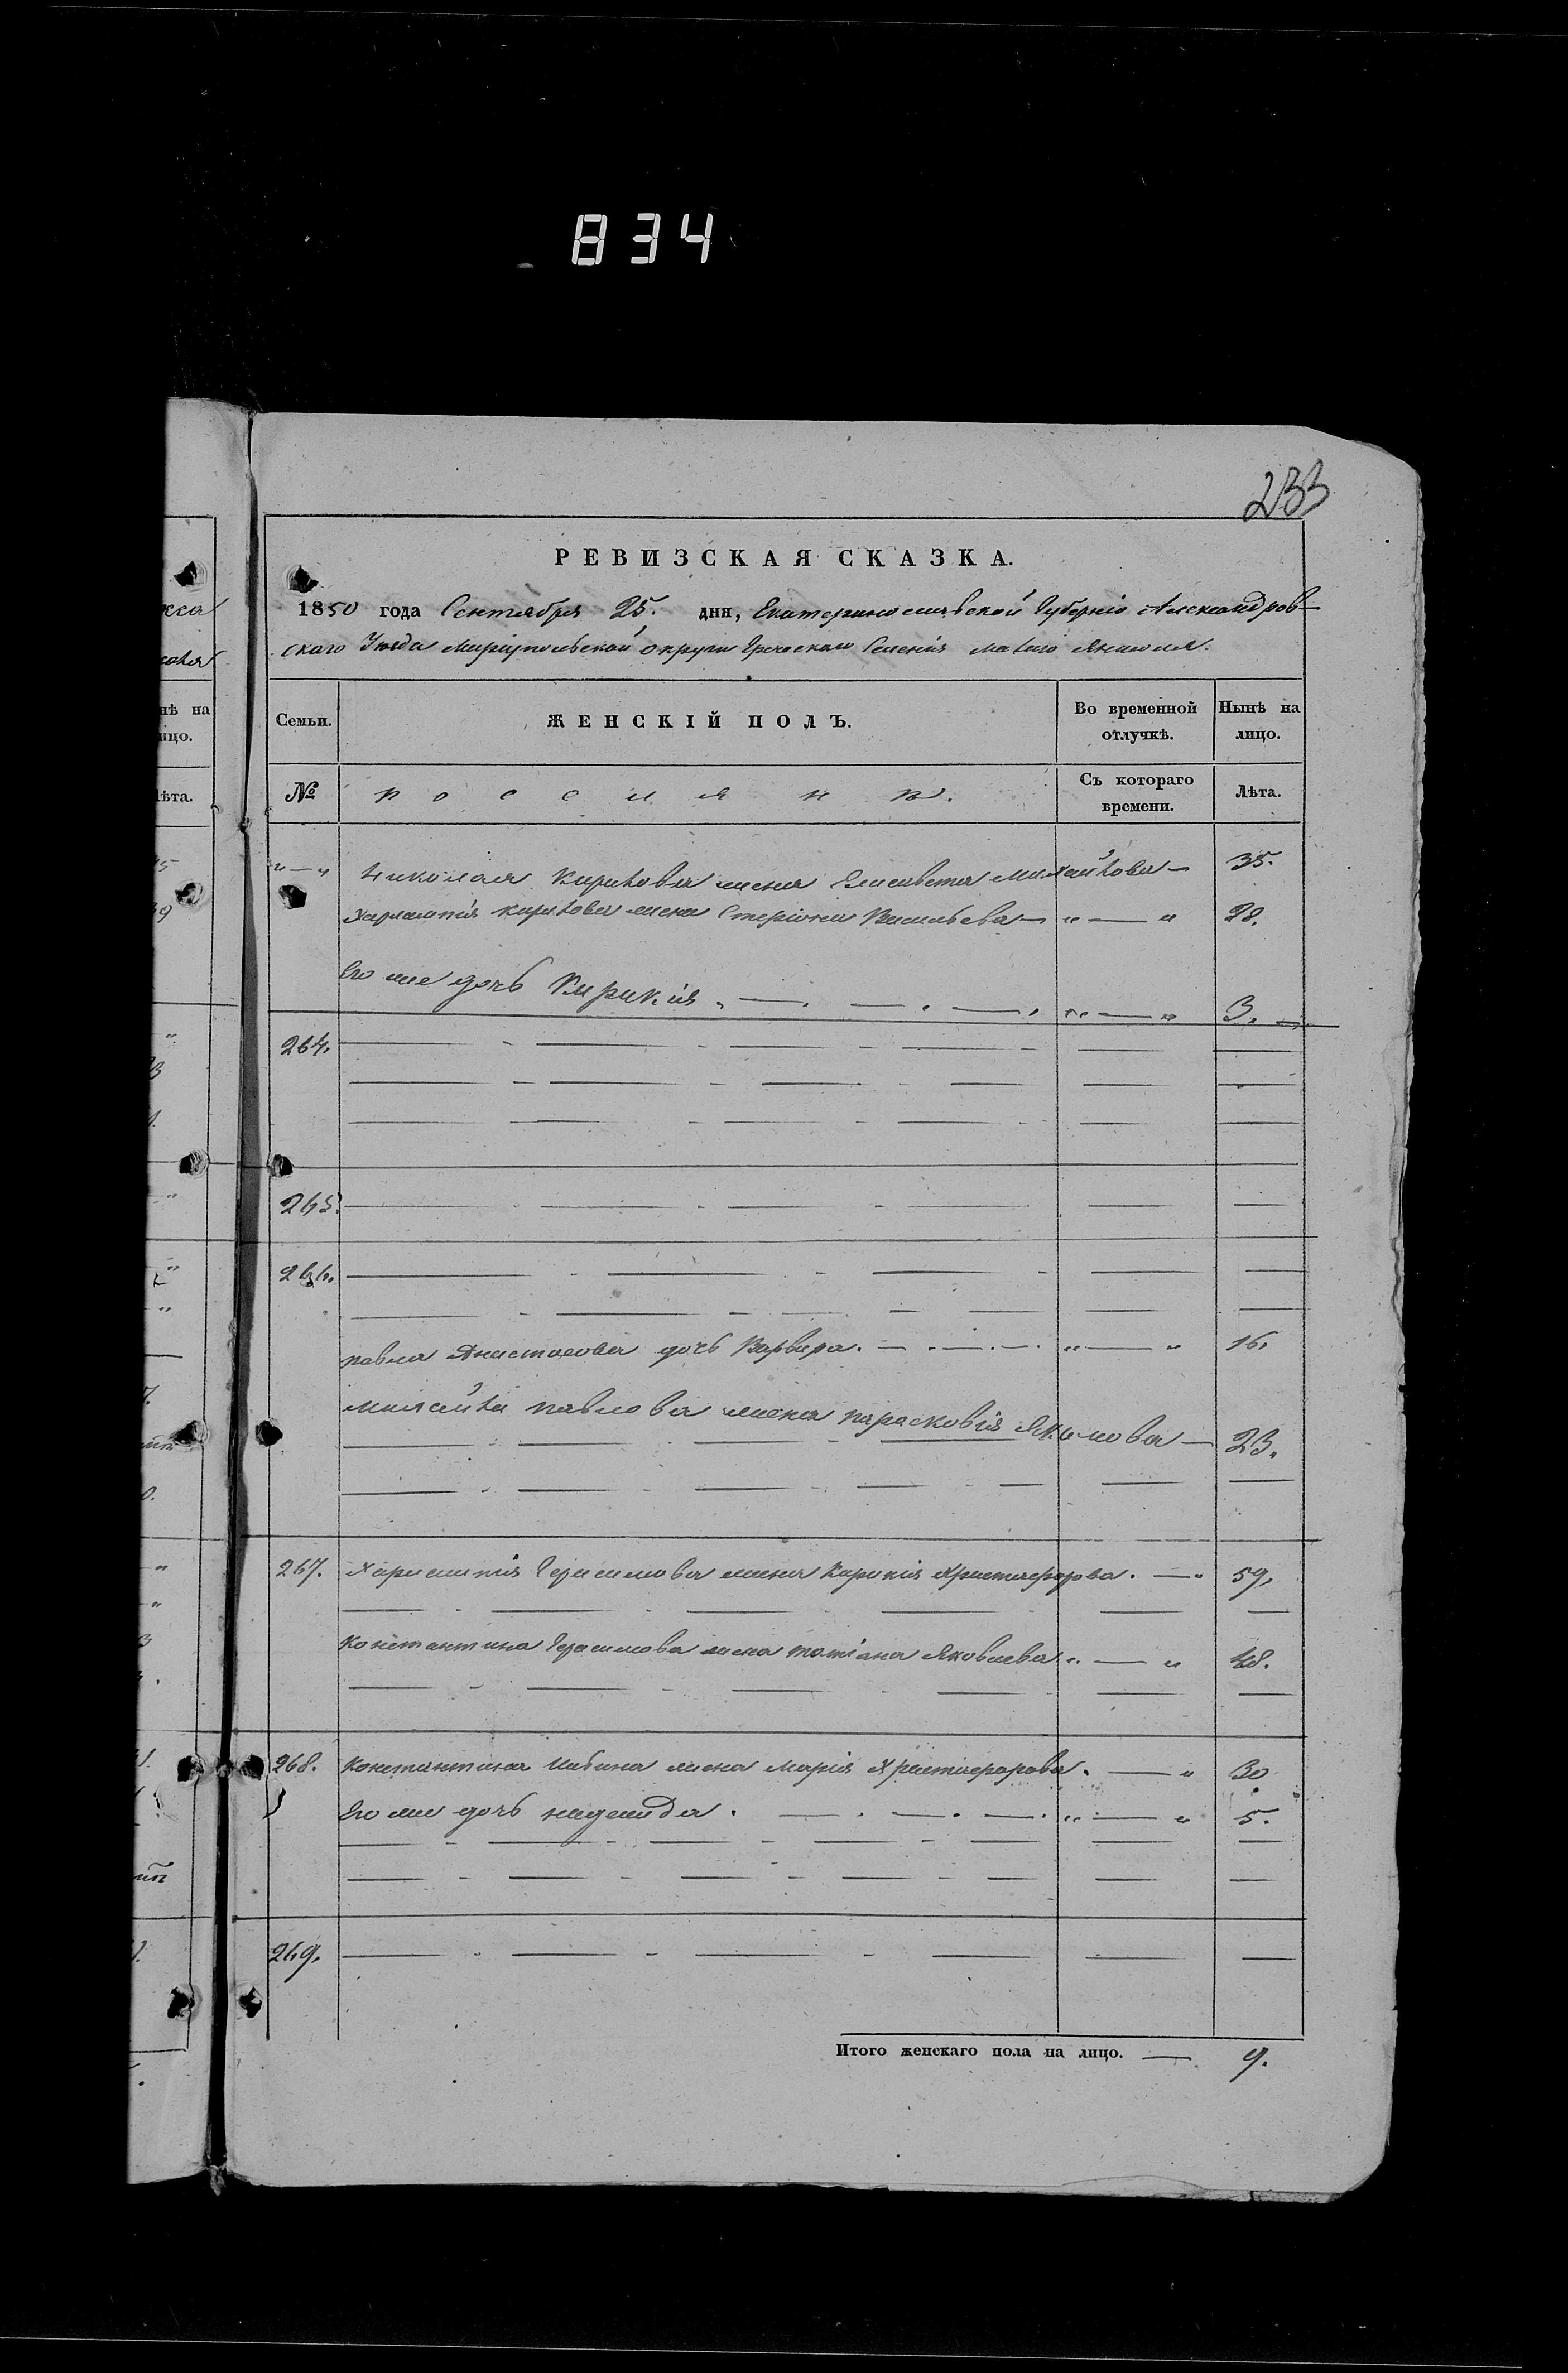 834
233
РЕВИЗСКАЯ СКАЗКА.
1850 года Сентября 25. дня, Екатеринославской Губерніи Александров-
скаго Уѣзда Маріупольской округи Греческаго Селенія малаго Янисоля.
Семьи. ЖЕНСКІЙ ПОЛЪ. Во временной отлучкѣ. Нынѣ на лицо.
№ поселянъ. Съ котораго времени. Лѣта.
„ — „ Николая Кирикова жена Елисавета Михайлова — 35.
Харлампія Кирикова жена Васильева — „ — „ 28.
Его же дочь Кирикія . — . — . — . „ — „ 3. —
264. — - — - — - — - — — —
265. — - — - — - — — —
266. — - — - — - — —
павла Анастасова дочь Варвара. — . — . — . „ — „ 16.
Михайла павлова жена парасковія Якимова — 23.
267. Харлампія Герасимова жена Кирикія Христофорова. — „ 59.
Константина Герасимова жена татіана Яковлева „ — „ 48.
268. Константина жена Марія Христофорова. — „ 30
Его же дочь надежда . — . — . — . „ — „ 5.
269. — - — - — - — — —
Итого женскаго пола на лицо. — 9.